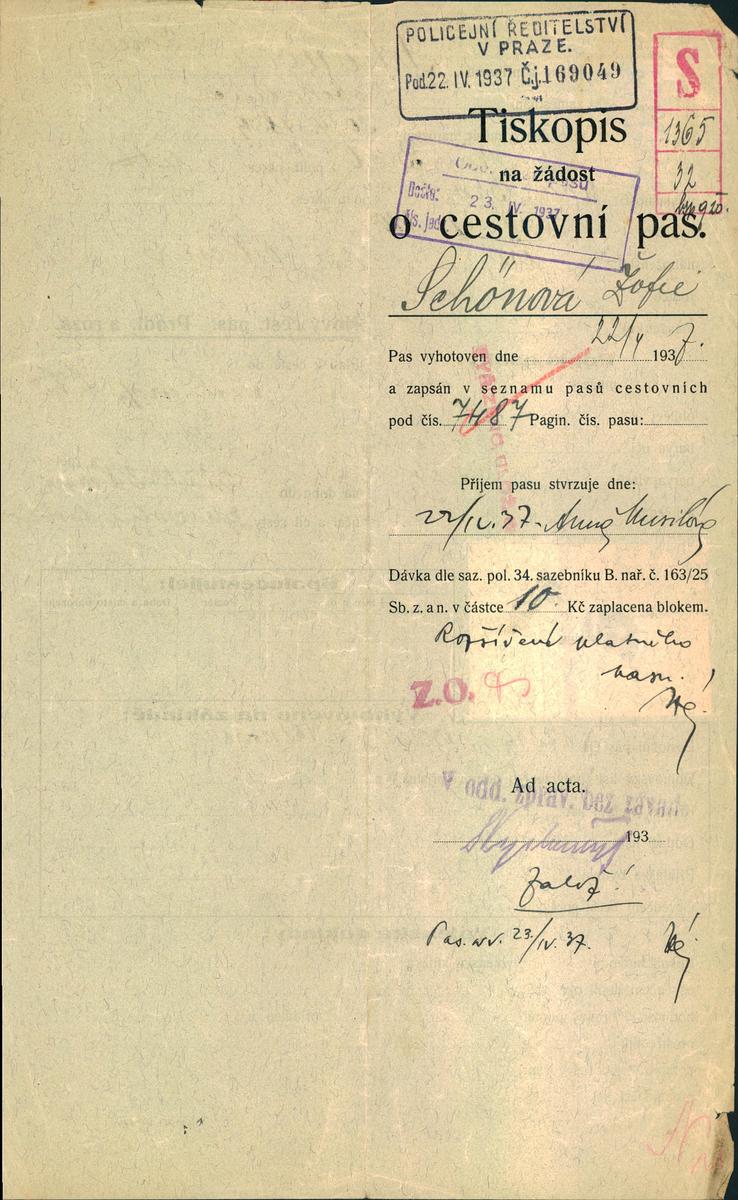 POLICEJNÍ ŘEDITELSTVÍ
V PRAZE.
Pod. 22. IV. 1937 Čj. 169049
S
1365
32
Tiskopis
na žádost
Došlo: 23. IV. 1937
Čís. jed
o cestovní pas.
Schönová Žofie
Pas vyhotoven dne 22/4 1937.
a zapsán v seznamu pasů cestovních
pod čís. 7487 Pagin. čís. pasu:
Příjem pasu stvrzuje dne:
22/IV.37. Anna Musilová
Dávka dle saz. pol. 34. sazebníku B. nař. č. 163/25
Sb. z. a n. v částce 10. Kč zaplacena blokem.
Rozšíření platného
pasu.
Z.O.
Ad acta.
V odd. zpráv. bez závad
193
Založ!
Pas. 23/IV.37.